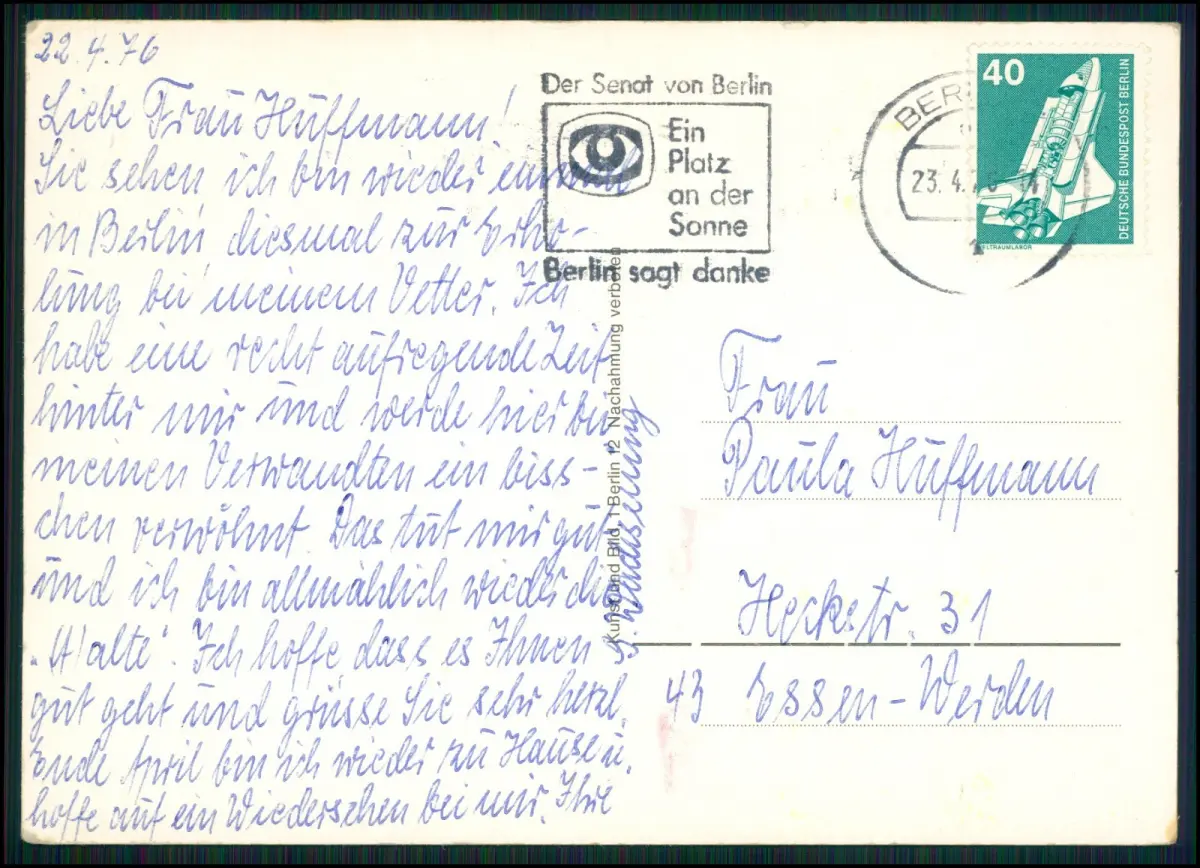 22.4.76
Liebe Frau Huffmann!
Sie sehen ich bin wieder einmal
in Berlin, diesmal zur Erho-
lung bei meinem Vetter. Ich
habe eine recht aufregende Zeit
hinter mir und werde hier bei
meinen Verwandten ein biss-
chen verwöhnt. Das tut mir gut
und ich bin allmählich wieder die
„(A)alte“. Ich hoffe, dass es Ihnen
gut geht und grüsse Sie sehr herzl.
Ende April bin ich wieder zu Hause u.
hoffe auf ein Wiedersehen bei mir. Ihre
Der Senat von Berlin
Ein
Platz
an der
Sonne
Berlin sagt danke
BER
23.4.76
1
40
DEUTSCHE BUNDESPOST BERLIN
WELTRAUMLABOR
Kunst und Bild, 1 Berlin 12 Nachahmung verboten
Frau
Paula Huffmann
Heckstr. 31
43 Essen-Werden